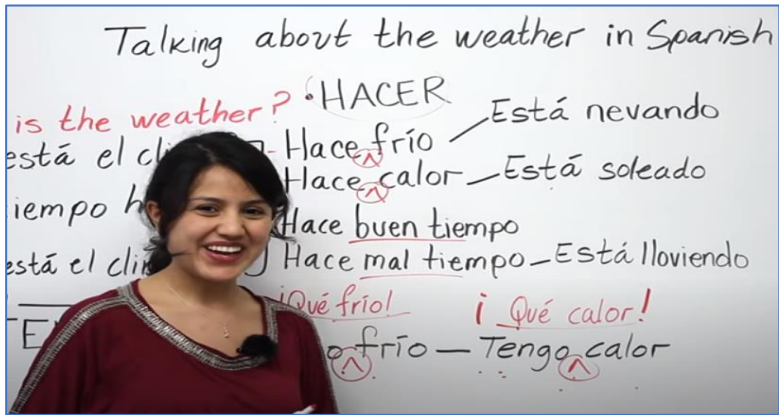 Talking about the weather in Spanish
is the weather? • HACER
Está nevando
está el Hace frío
Hace calor — Está soleado
Hace buen tiempo
está el Hace mal tiempo — Está lloviendo
¡Qué frío! ¡Qué calor!
frío — Tengo calor